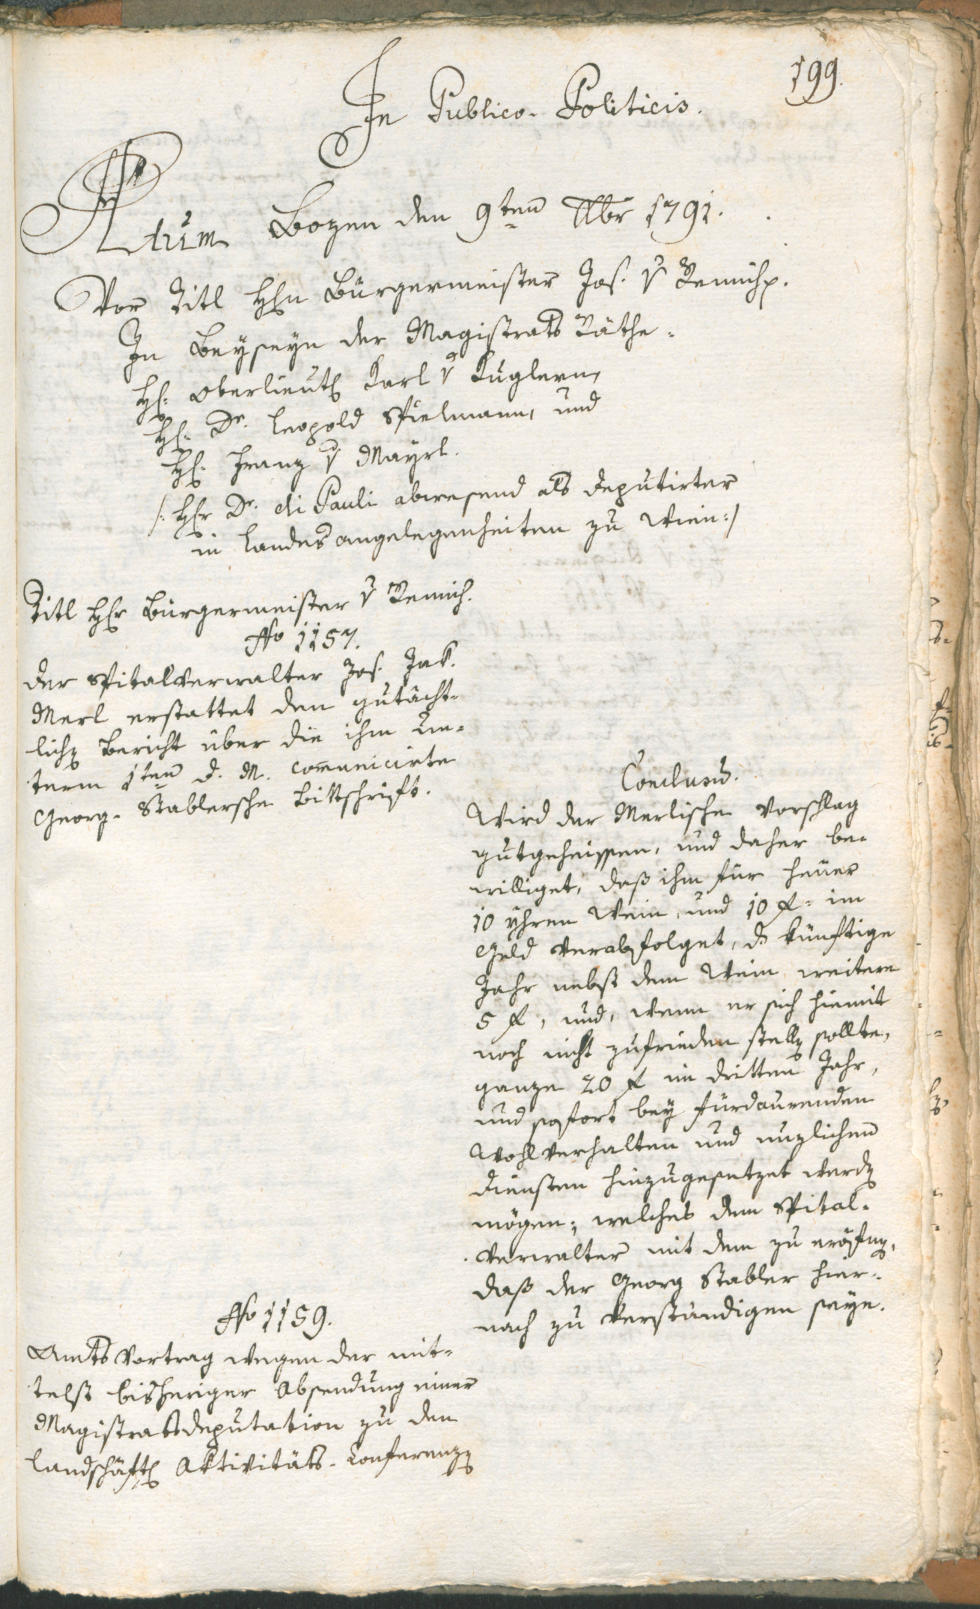 199.
In Publico-Politicis.
Actum Bozen den 9ten Xbr 1791.
Vor Titl Hℏn Bürgermeister Jos. v Remich.
In Beyseyn der Magistrats Räthe.
Hℏ: Oberlieut Karl v Kuglern,
Hℏ. Dr. Leopold Spielmann, und
Hℏ. Franz v Mayrl.
/: Hℏr Dr. di Pauli abwesend als deputirter
in Landesangelegenheiten zu Wien:/
Titl Hℏr Bürgermeister v Remich.
No 1157.
Der Spitalverwalter Jos. Jak.
Merl erstattet den gutächt-
lichen Bericht über die ihm Un-
term 1ten d. M. com̅unicirte
Georg-Stablersche Bittschrift.
Conclusum.
Wird der Merlische Vorschlag
gutgeheissen, und daher be-
williget, daß ihm für heuer
10 Yhren Wein, und 10 f. im
Geld verabfolget, d. künftige
Jahr nebst dem Wein weitere
5 f., und, wenn er sich hiemit
noch nicht zufrieden stellen sollte,
ganze 20 f im dritten Jahr,
und sofort bey fürdaurenden
Wohlverhalten und nuzlichen
Diensten hinzugesetzet werden
mögen; welches dem Spital-
verwalter mit dem zu eröfnen,
daß der Georg Stabler hier-
nach zu verständigen seye.
No 1159.
Amtsvortrag wegen der mit-
telst bisheriger Absendung einer
Magistratsdeputation zu den
Landschäftl Aktivitäts-Conferenzen